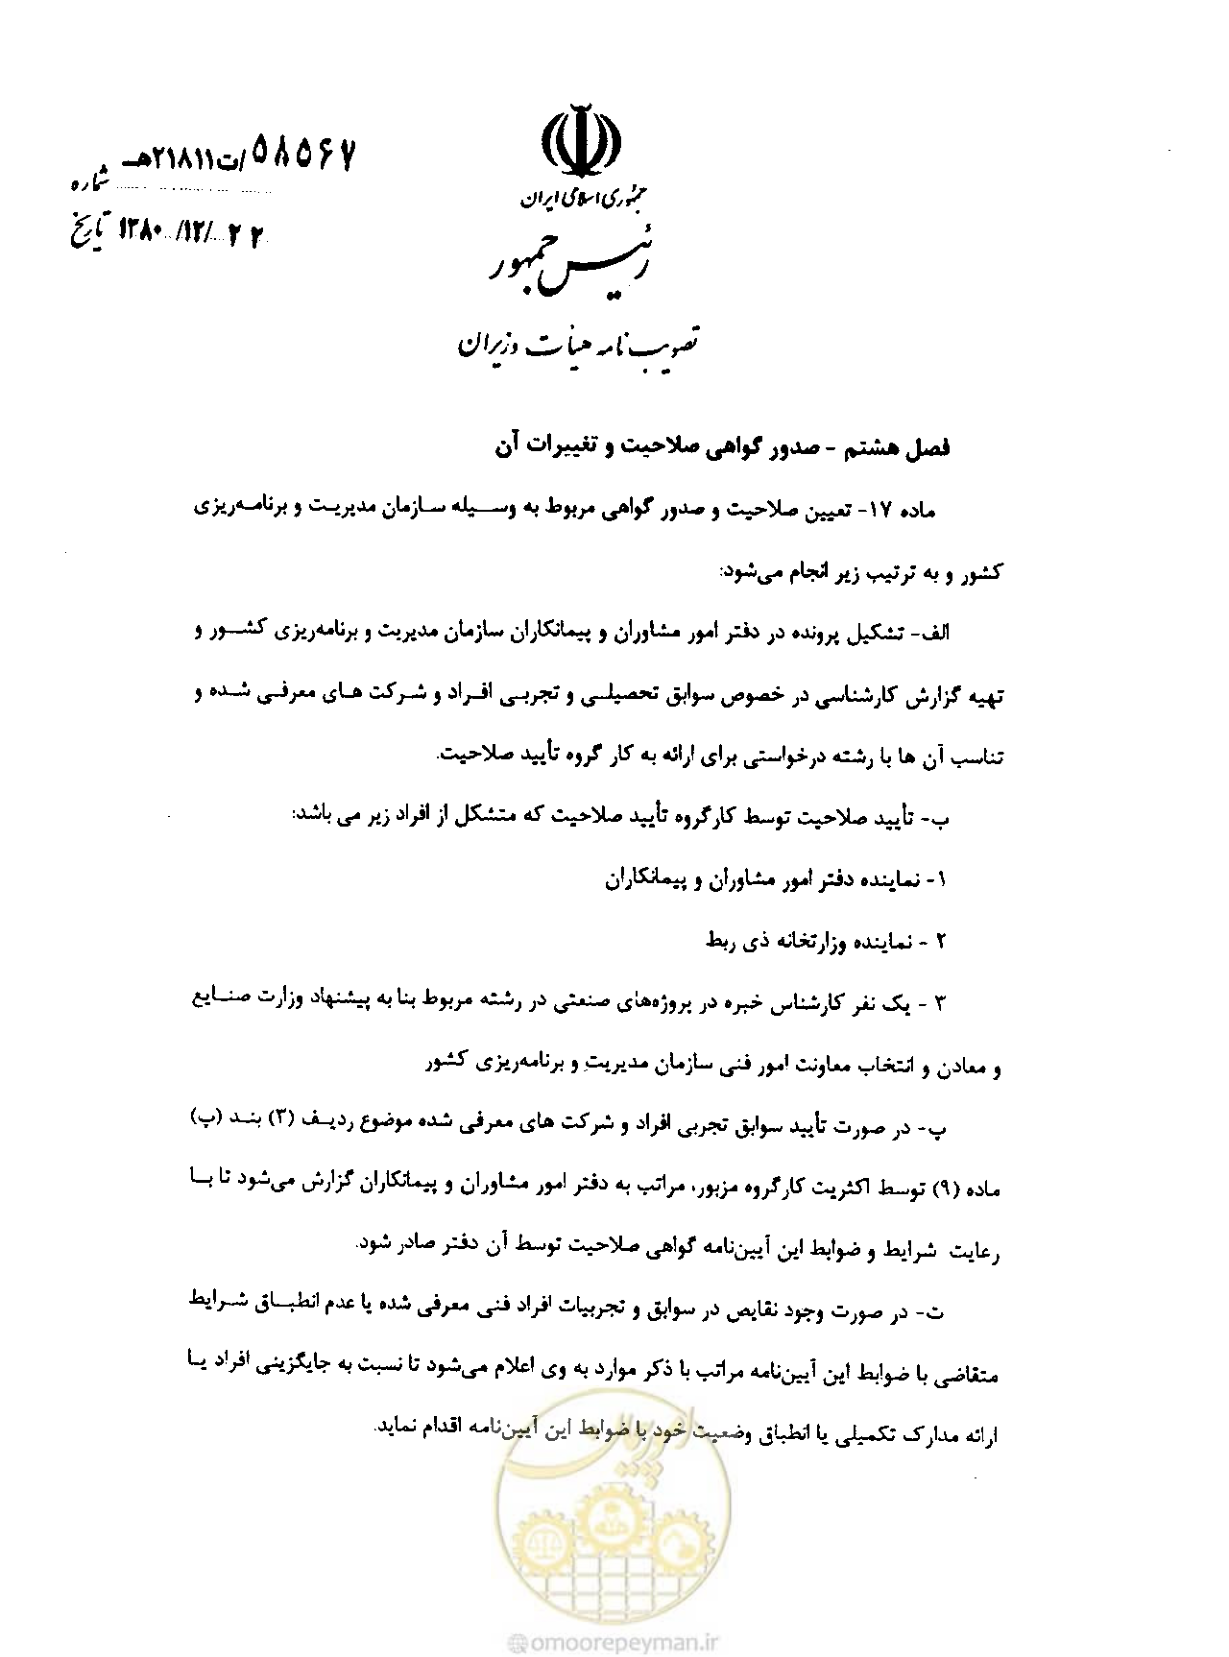 شماره ۵۸۵۶۷/ت۲۱۸۱۱هـ
تاریخ ۱۳۸۰/۱۲/۲۲
جمهوری اسلامی ایران
رئیس جمهور
تصویب نامه هیأت وزیران
فصل هشتم - صدور گواهی صلاحیت و تغییرات آن
ماده ۱۷- تعیین صلاحیت و صدور گواهی مربوط به وسیله سازمان مدیریت و برنامه‌ریزی
کشور و به ترتیب زیر انجام می‌شود:
الف- تشکیل پرونده در دفتر امور مشاوران و پیمانکاران سازمان مدیریت و برنامه‌ریزی کشور و
تهیه گزارش کارشناسی در خصوص سوابق تحصیلی و تجربی افراد و شرکت های معرفی شده و
تناسب آن ها با رشته درخواستی برای ارائه به کار گروه تأیید صلاحیت.
ب- تأیید صلاحیت توسط کارگروه تأیید صلاحیت که متشکل از افراد زیر می باشد:
۱- نماینده دفتر امور مشاوران و پیمانکاران
۲ - نماینده وزارتخانه ذی ربط
۳ - یک نفر کارشناس خبره در پروژه‌های صنعتی در رشته مربوط بنا به پیشنهاد وزارت صنایع
و معادن و انتخاب معاونت امور فنی سازمان مدیریت و برنامه‌ریزی کشور
پ- در صورت تأیید سوابق تجربی افراد و شرکت های معرفی شده موضوع ردیف (۳) بند (پ)
ماده (۹) توسط اکثریت کارگروه مزبور، مراتب به دفتر امور مشاوران و پیمانکاران گزارش می‌شود تا با
رعایت شرایط و ضوابط این آیین‌نامه گواهی صلاحیت توسط آن دفتر صادر شود.
ت- در صورت وجود نقایص در سوابق و تجربیات افراد فنی معرفی شده یا عدم انطباق شرایط
متقاضی با ضوابط این آیین‌نامه مراتب با ذکر موارد به وی اعلام می‌شود تا نسبت به جایگزینی افراد یا
ارائه مدارک تکمیلی یا انطباق وضعیت خود با ضوابط این آیین‌نامه اقدام نماید.
امور پیمان
@omoorepeyman.ir